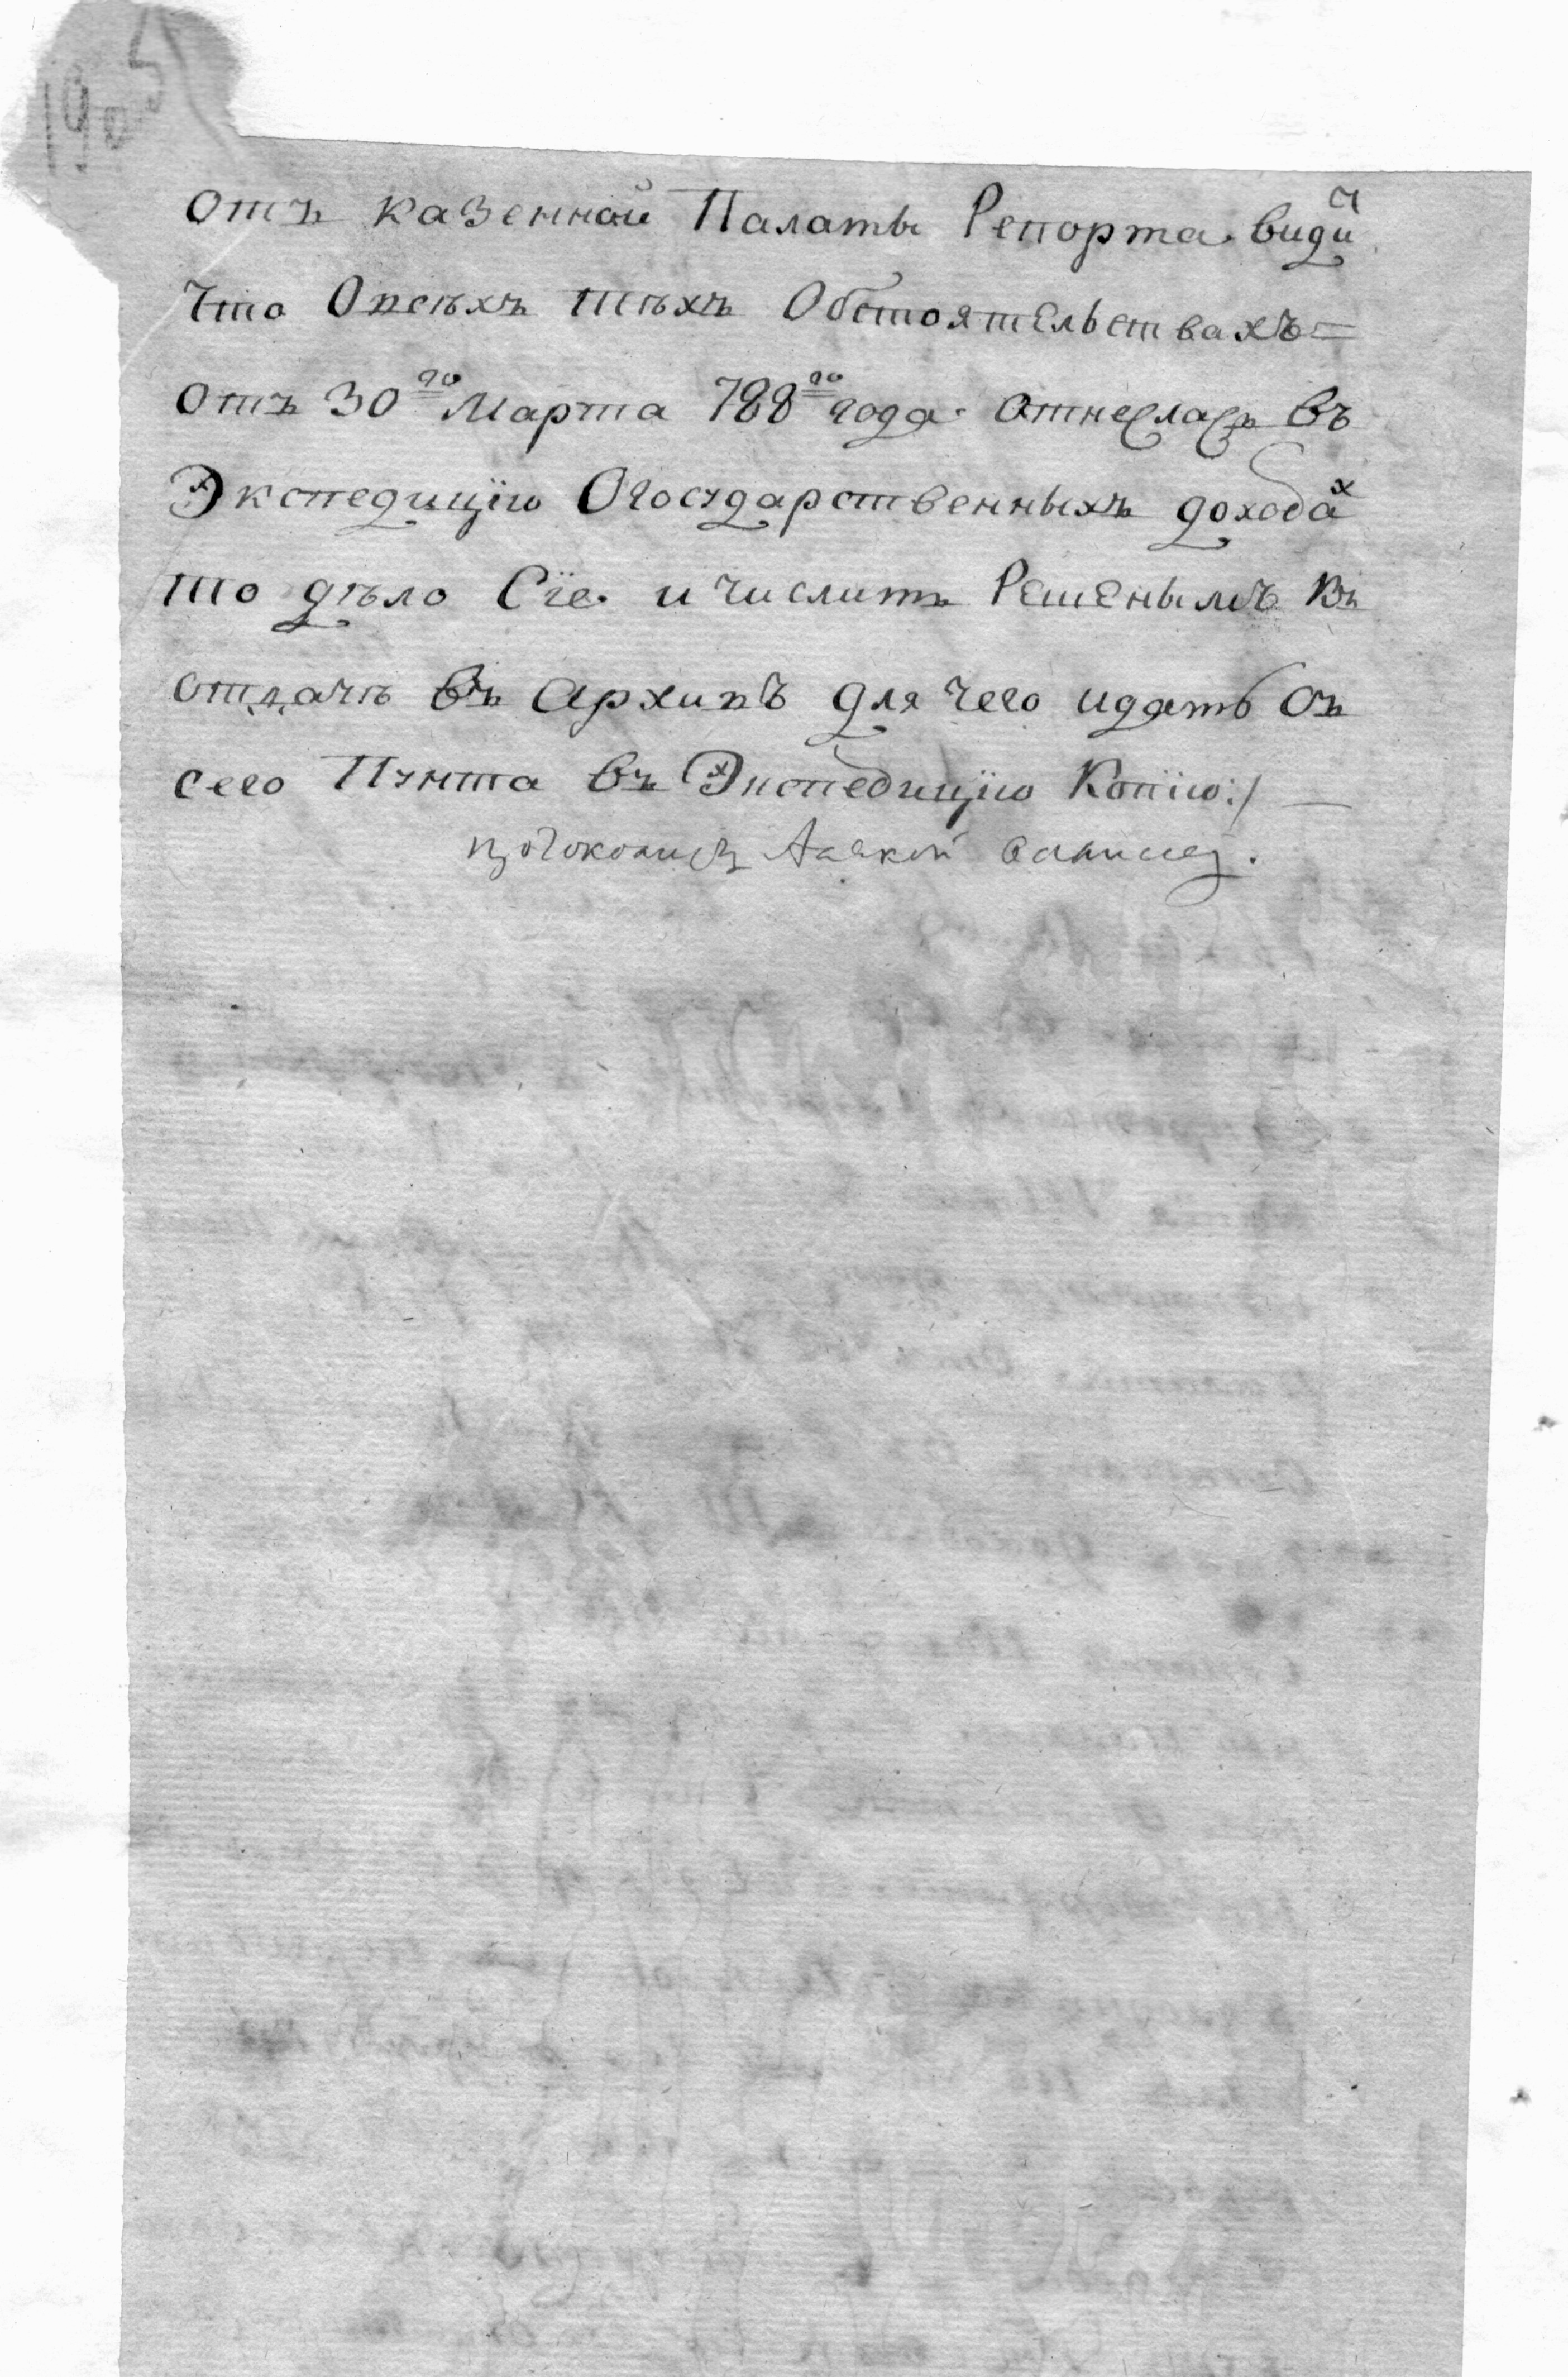 1905
отъ казенной Палаты Репорта види^т
что Овсѣхъ тѣхъ Обстоятельствахъ=
отъ 30^го Марта 788^го года отнеслась въ
Экспедицїю Огосударственныхъ дохода^х
то дѣло Сїе и числить Решенымъ въ
отдачѣ въ архивъ для чего идать Съ
сего Пункта въ Экспедицїю Копїю:/ —